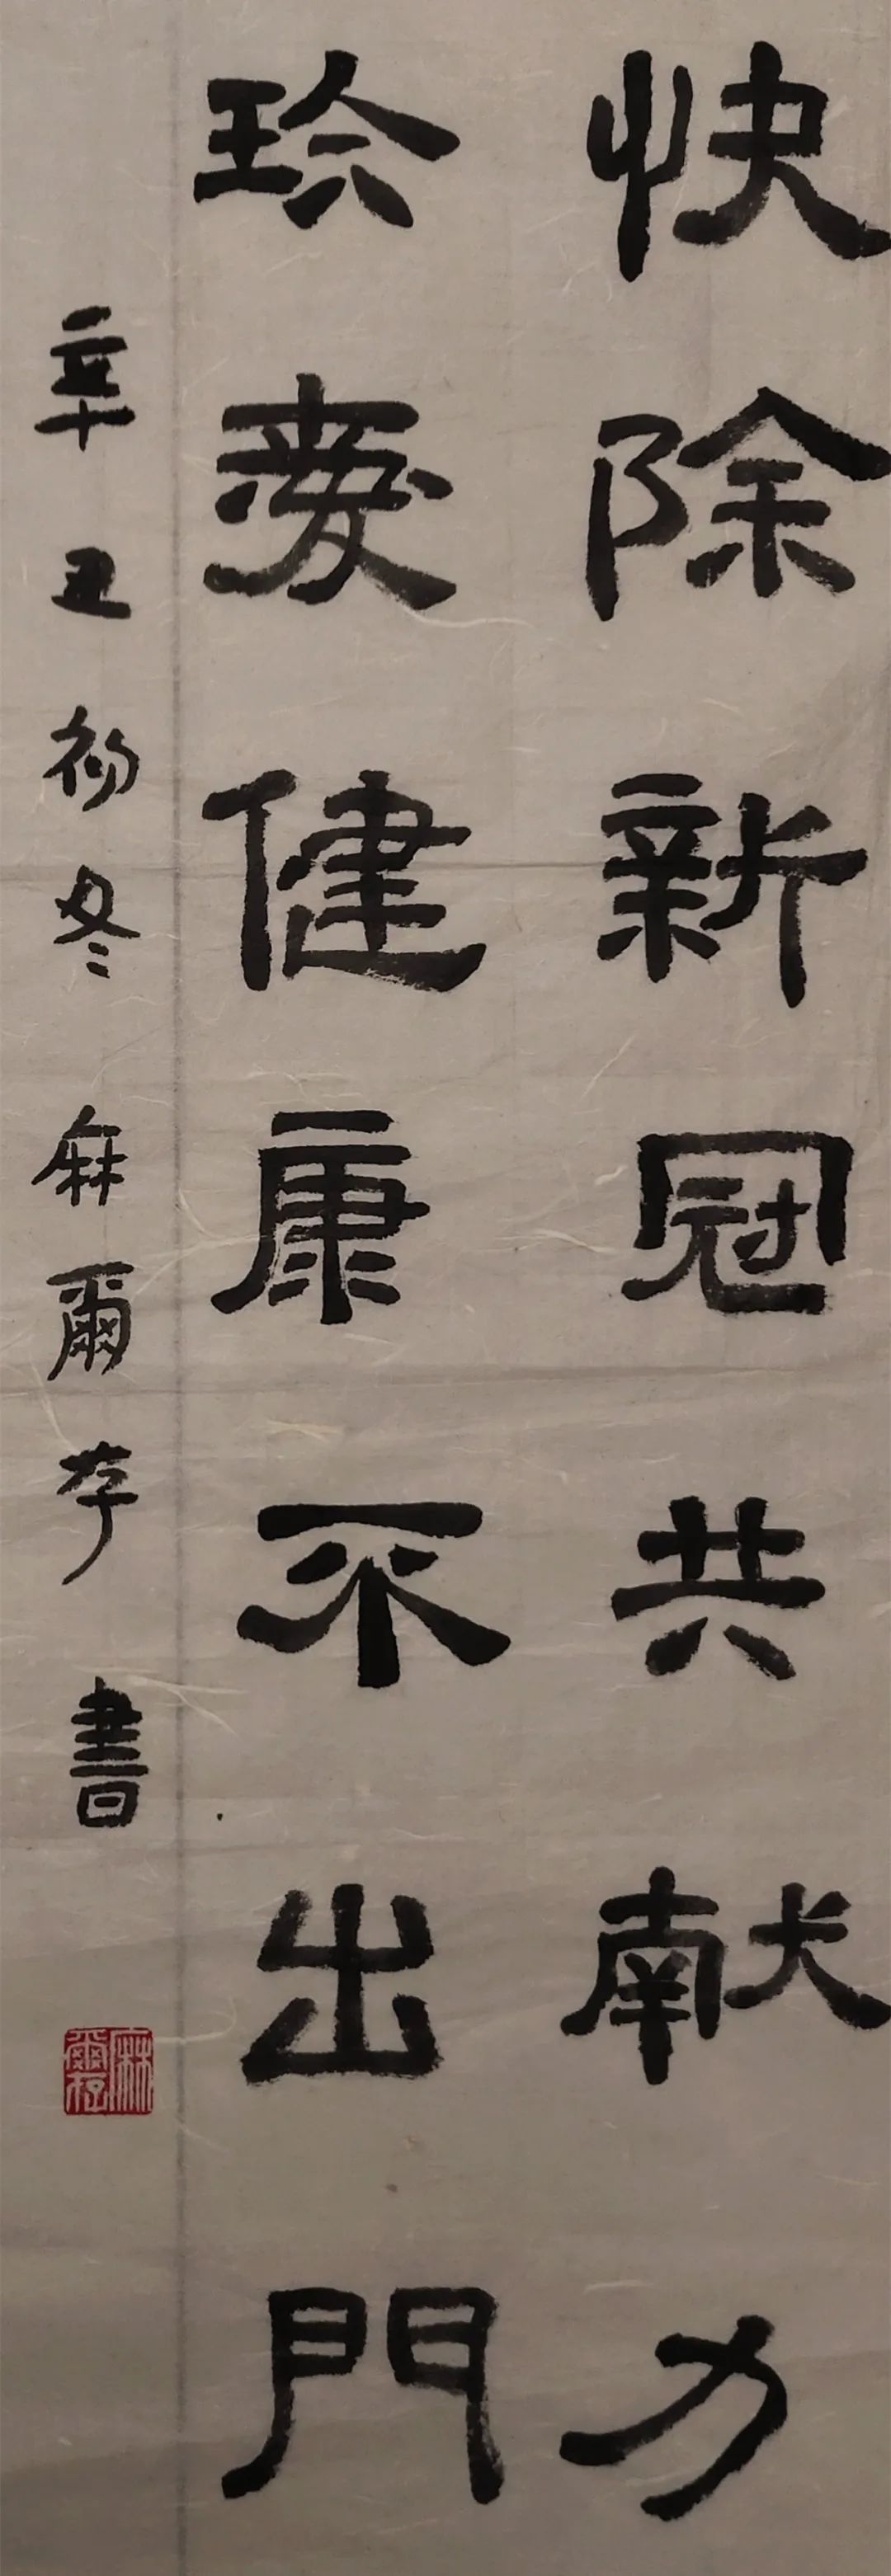 快除新冠共献力
珍爱健康不出門
辛丑初冬 麻爾存 書
麻爾存